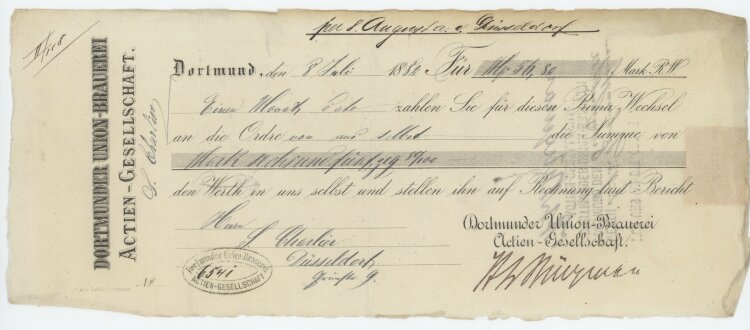 per 8. August a. c. Düsseldorf
DORTMUNDER UNION-BRAUEREI
ACTIEN-GESELLSCHAFT.
S. Charlier
Dortmund, den 8 Juli 1882 Für Mk 56,80 Mark R.W.
Einen Monat dato zahlen Sie für diesen Prima Wechsel
an die Ordre von uns selbst die Summe von
Mark sechsundfünfzig 80/100
den Werth in uns selbst und stellen ihn auf Rechnung laut Bericht
Herrn
S Charlier
Düsseldorf
9.
Dortmunder Union-Brauerei
Actien-Gesellschaft.
Dortmunder Union-Brauerei
6541
ACTIEN-GESELLSCHAFT